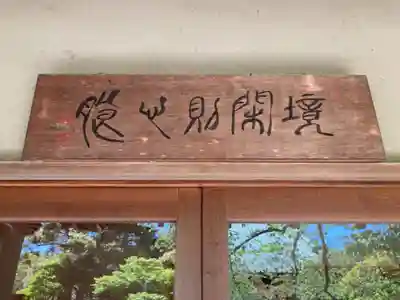 境閑則心